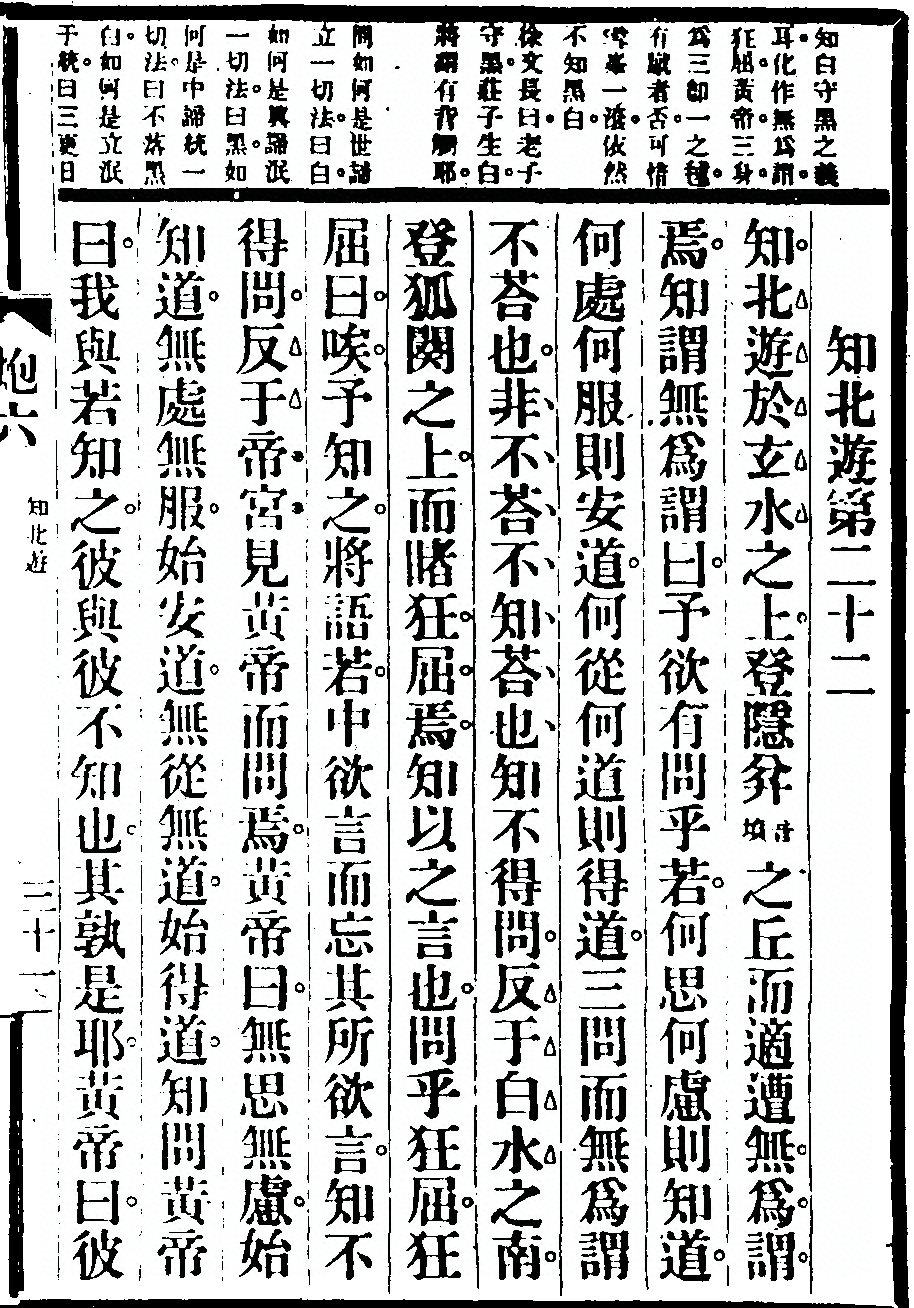 知白守黑之義
耳化作無爲謂
狂屈黃帝三身
爲三卽一之
有眾者否可惜
一依然
不知黑白
徐文長曰老子
守黑莊子生白
將謂有背觸耶
問如何是世諦
立一切法曰白
如何是真諦泯
一切法曰黑如
何是中諦統一
切法曰不落黑
白如何是立泯
于統曰三更日
知北遊第二十二
知北遊於玄水之上登隱弅音墳之丘而適遭無爲謂
焉知謂無爲謂曰予欲有問乎若何思何慮則知道
何處何服則安道何從何道則得道三問而無爲謂
不荅也非不荅不知荅也知不得問反于白水之南
登狐闋之上而睹狂屈焉知以之言也問乎狂屈狂
屈曰唉予知之將語若中欲言而忘其所欲言知不
得問反于帝宮見黃帝而問焉黃帝曰無思無慮始
知道無處無服始安道無從無道始得道知問黃帝
曰我與若知之彼與彼不知也其孰是耶黃帝曰彼
炮六
知北遊
三十一